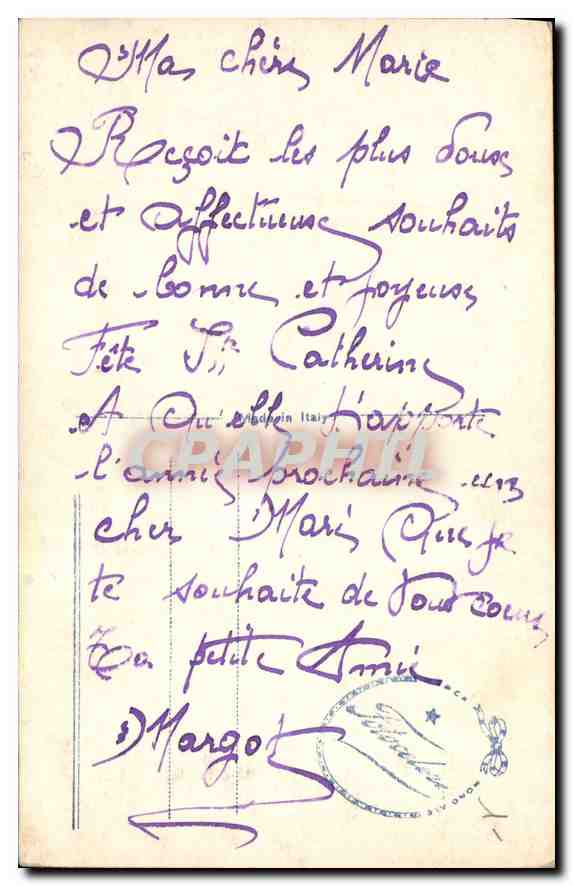 Ma chère Marie
Reçoit les plus Doux
et affectueuse souhaits
de bonne et joyeuse
Fête Ste Catherine
Made in Italy
et qu'elle t'apporte
CRAPHIL
l'année prochaine un
cher Mari que je
te souhaite de Tout coeur
Ta petite Amie
Margot